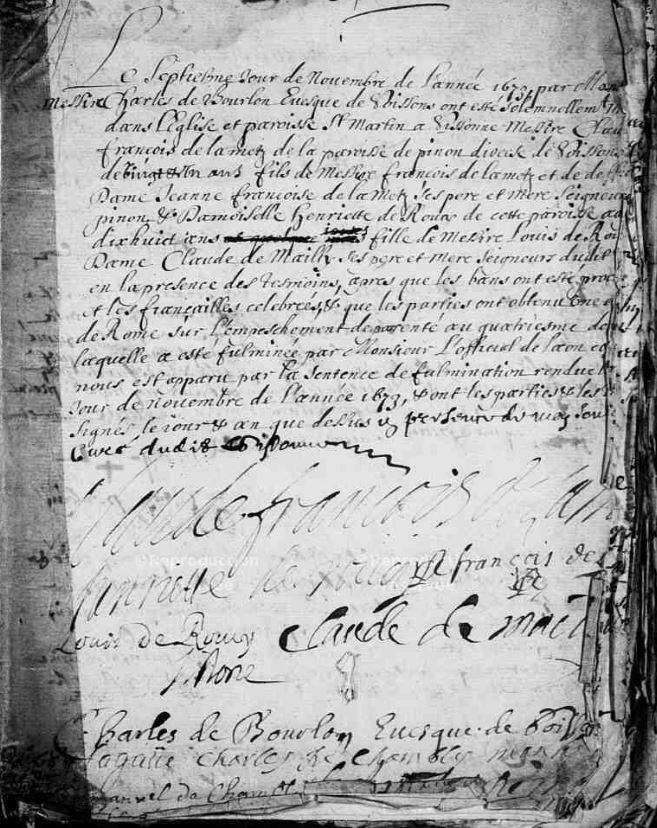 Le Septiesme Jour de Novembre de l'année 1673, par Mons
Messire Charles de Bourlon Evesque de Soissons ont esté solemnellem
dans l'Eglise et paroisse St Martin a Sissonne Messire Clau
françois de lametz de la paroisse de pinon diocese de Soissons
de vingt un ans fils de Messire françois de lametz et de def
Dame Jeanne françoise de lametz ses pere et mere Seigneurs
pinon & Damoiselle Henriette de Roucy de cette paroisse aag
dixhuict ans fille de Messire Louis de Rou
Dame Claude de Mailly ses pere et mere Seigneurs dudit
en la presence des tesmoins, apres que les bans ont esté proc
et les françailles celebrees, & que les parties ont obtenu une
de Rome sur l'empeschement de parenté au quatriesme de
laquelle a este fulminée par Monsieur l'official de laon co
nous est apparu par la sentence de fulmination rendue le
Jour de novembre de l'année 1673, & ont les parties & les
signés le iour & an que dessus en presence de moy
Curé dudit Sissonne
Claude françois de lam
hanriette de roucy françois de
Louis de Roucy Claude de mail
Charles de Bourlon Evesque de Soiss
charles de Chambly
de Chambl
© Reproducción